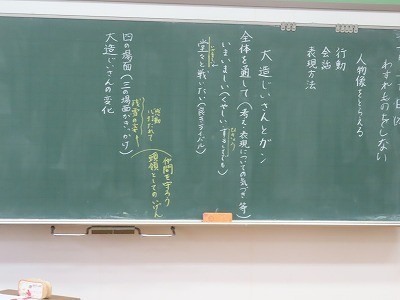 わすれものをしない
人物像をとらえる
行動
会話
表現方法
大造じいさんとガン
全体を通して(考え・表現についての気づき 等)
いまいましい(くやしい
堂々と戦いたい(良きライバル)
四の場面(三の場面がきっかけ)
大造じいさんの変化
残雪の姿
感動
心打たれて
仲間を守ろう
頭領としてのいげん